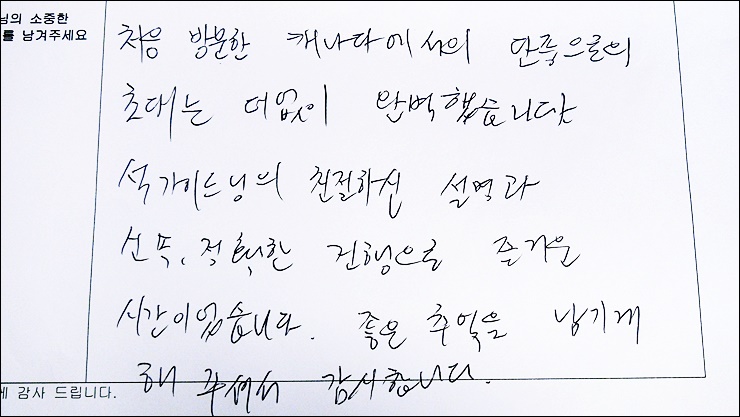 님의 소중한
를 남겨주세요
처음 방문한 캐나다에서의 단풍으로의
초대는 더없이 완벽했습니다
석가이드님의 친절하신 설명과
신속, 정확한 진행으로 즐거운
시간이었습니다. 좋은 추억을 남기게
해 주셔서 감사합니다.
에 감사 드립니다.